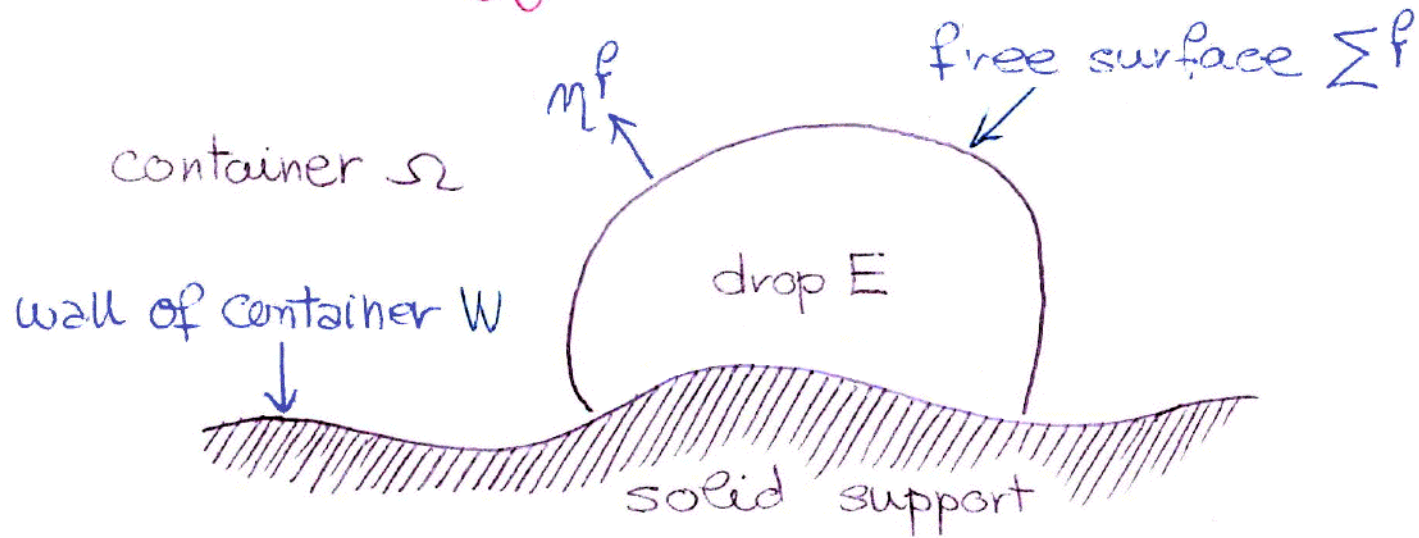 free surface Σᶠ
ηᶠ
container Ω
drop E
wall of container W
solid support